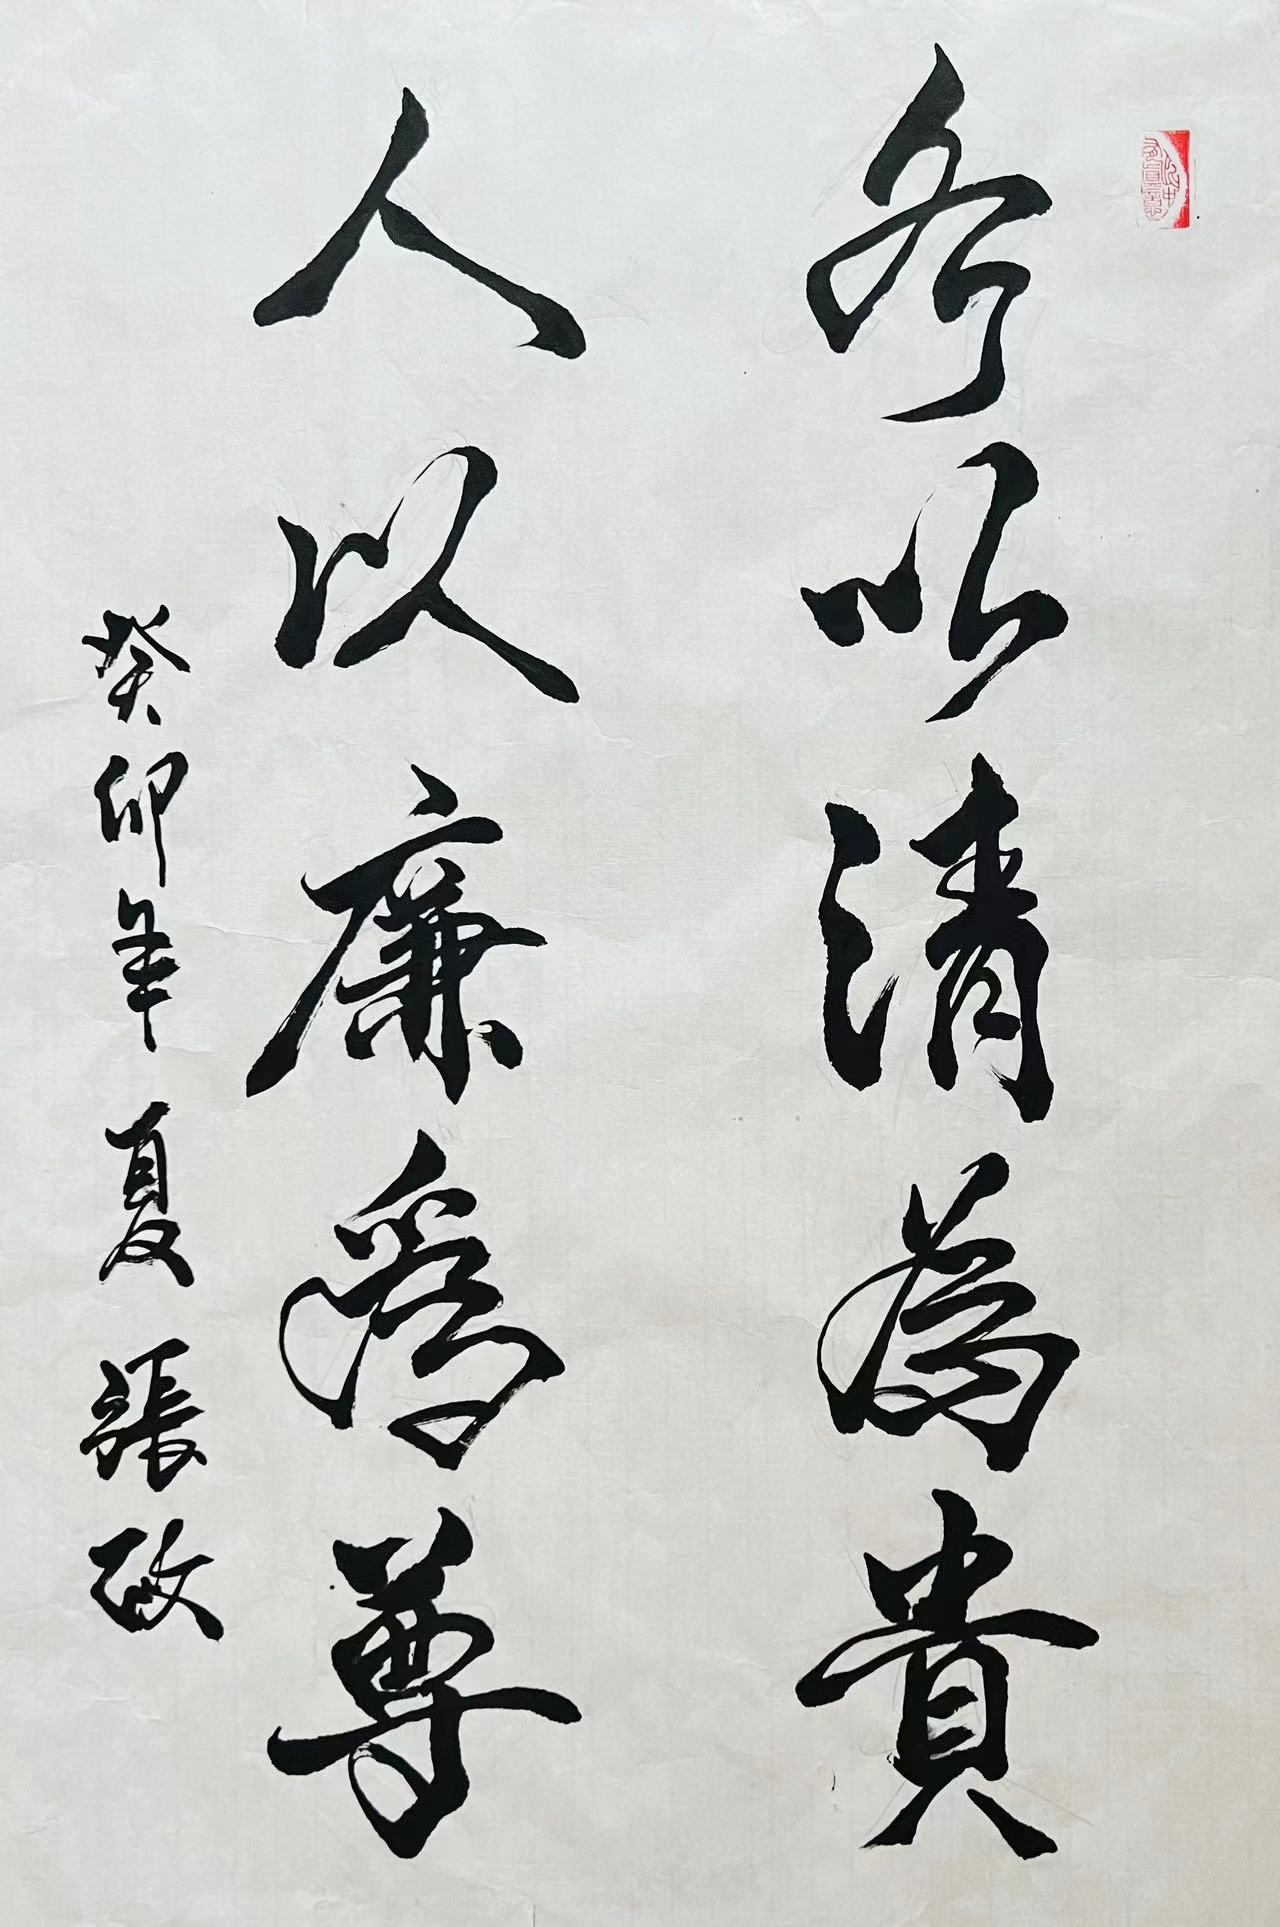 以清為貴
人以廉為尊
癸卯年夏張政